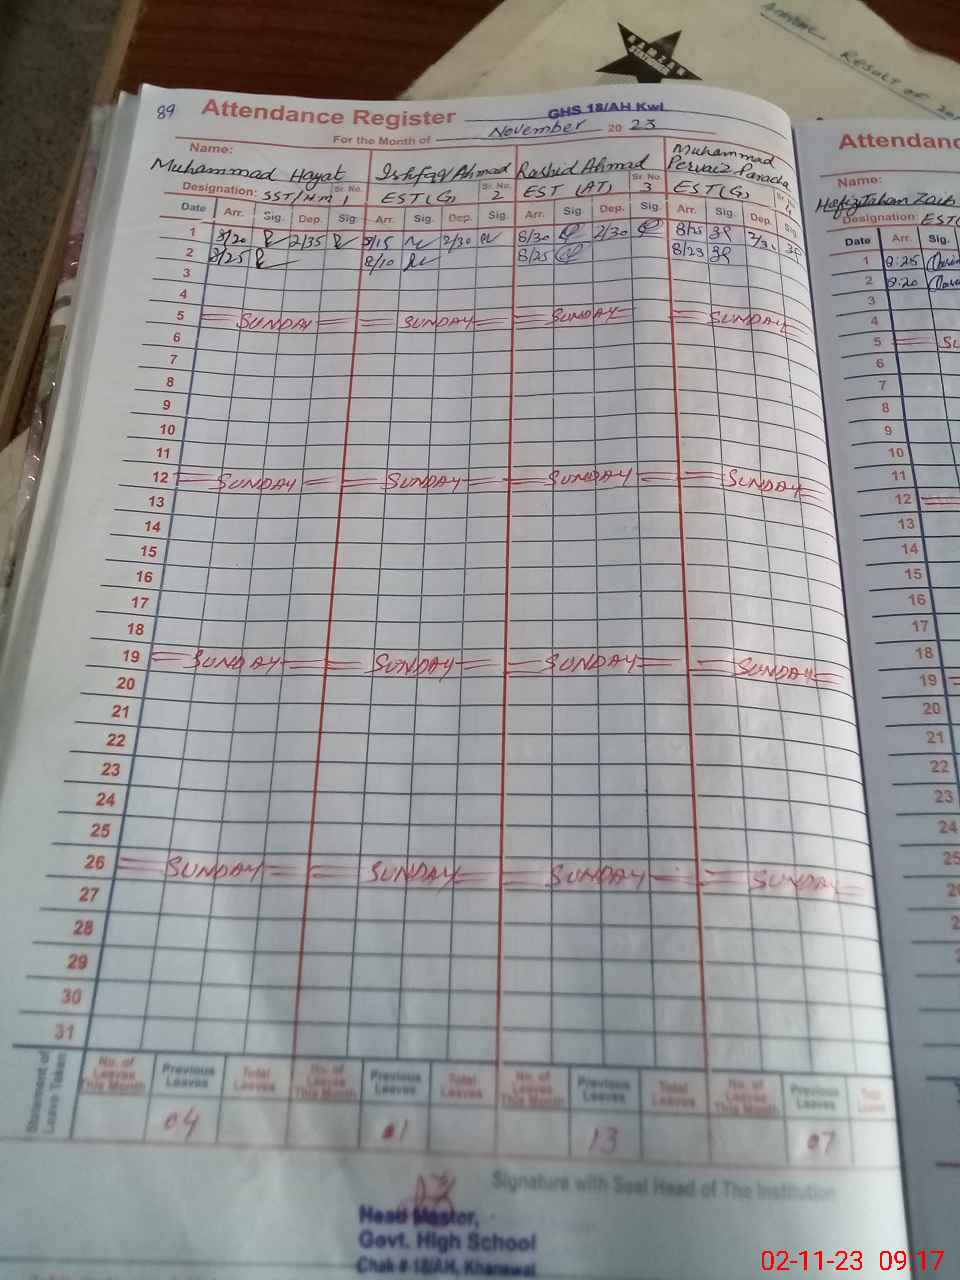 RAMZAN
ANNUAL RESULT OF
89 Attendance Register GHS 18/AH Kwl
For the Month of November 2023
Name: Muhammad Hayat Ishfaq Ahmad Rashid Ahmad Muhammad Pervaiz
Designation: SST/HM Sr. No. 1 EST(G) Sr. No. 2 EST (AT) Sr. No. 3 EST(G) Sr. No. 4
Date Arr. Sig. Dep. Sig. Arr. Sig. Dep. Sig. Arr. Sig. Dep. Sig. Arr. Sig. Dep. Sig.
1 8/20 2/35 8/15 2/30 8/30 2/30 8/25
2 8/25 8/10 8/25 8/23
3
4
5 SUNDAY SUNDAY SUNDAY SUNDAY
6
7
8
9
10
11
12 SUNDAY SUNDAY SUNDAY SUNDAY
13
14
15
16
17
18
19 SUNDAY SUNDAY SUNDAY SUNDAY
20
21
22
23
24
25
26 SUNDAY SUNDAY SUNDAY SUNDAY
27
28
29
30
31
Statement of Leave Taken
No. of Leaves This Month Previous Leaves Total Leaves No. of Leaves This Month Previous Leaves Total Leaves No. of Leaves This Month Previous Leaves Total Leaves No. of Leaves This Month Previous Leaves Total Leave
04 01 13 07
Signature with Seal Head of The Institution
Head Master,
Govt. High School
Chak # 18/AH, Khanewal
Attendanc
Name:
Designation: EST
Date Arr. Sig.
1 8:25
2 8:20
3
4
5 SU
6
7
8
9
10
11
12
13
14
15
16
17
18
19
20
21
22
23
24
25
02-11-23 09:17